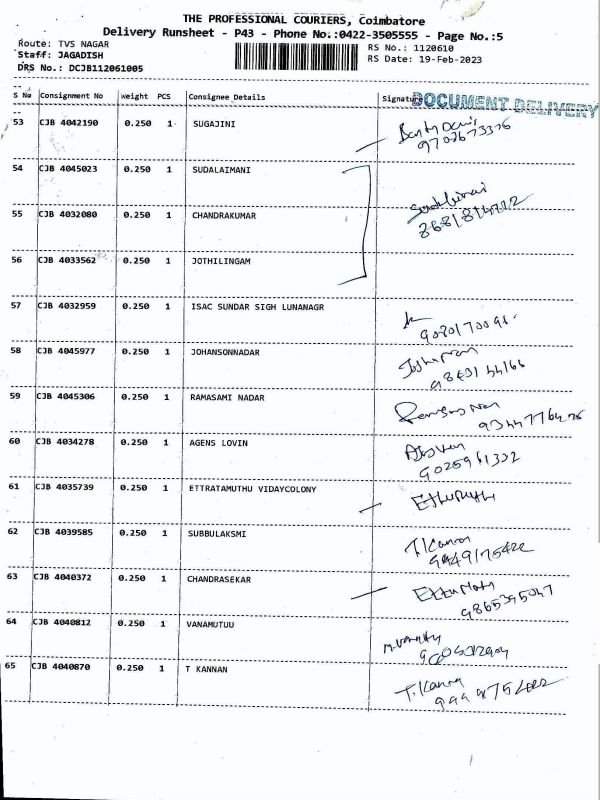 THE PROFESSIONAL COURIERS, Coimbatore
Delivery Runsheet - P43 - Phone No.:0422-3505555 - Page No.:5
Route: TVS NAGAR
RS No.: 1120610
Staff: JAGADISH
RS Date: 19-Feb-2023
DRS No.: DCJB112061005
S No Consignment No Weight PCS Consignee Details Signature
DOCUMENT DELIVERY
53 CJB 4042190 0.250 1 SUGAJINI
54 CJB 4045023 0.250 1 SUDALAIMANI
55 CJB 4032080 0.250 1 CHANDRAKUMAR
56 CJB 4033562 0.250 1 JOTHILINGAM
57 CJB 4032959 0.250 1 ISAC SUNDAR SIGH LUNANAGR
58 CJB 4045977 0.250 1 JOHANSONNADAR
59 CJB 4045306 0.250 1 RAMASAMI NADAR
60 CJB 4034278 0.250 1 AGENS LOVIN
9025961332
61 CJB 4035739 0.250 1 ETTRATAMUTHU VIDAYCOLONY
62 CJB 4039585 0.250 1 SUBBULAKSMI
T. Kannan
63 CJB 4040372 0.250 1 CHANDRASEKAR
9865395047
64 CJB 4040812 0.250 1 VANAMUTUU
65 CJB 4040870 0.250 1 T KANNAN
T. Kannan